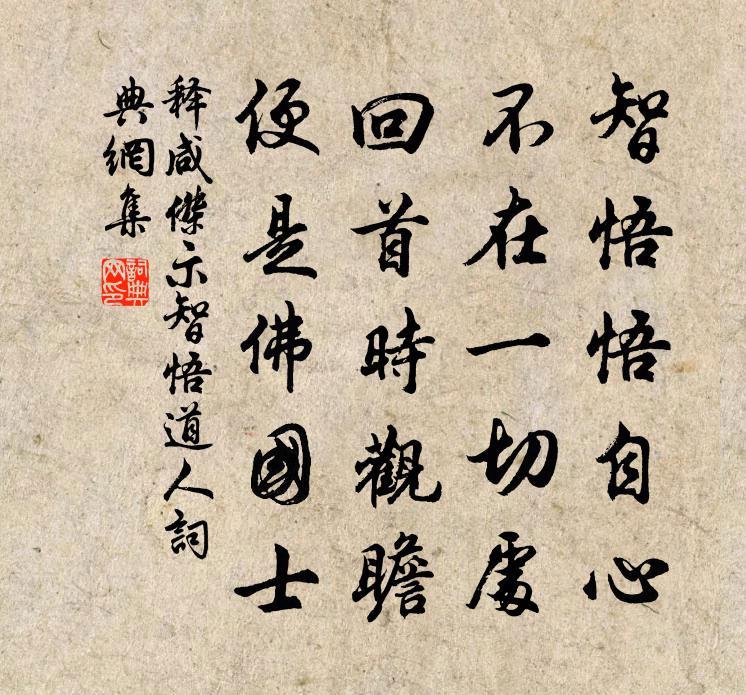 智悟悟自心
不在一切處
回首時觀瞻
便是佛國士
释咸傑示智悟道人詞
典網集
詞典
网印